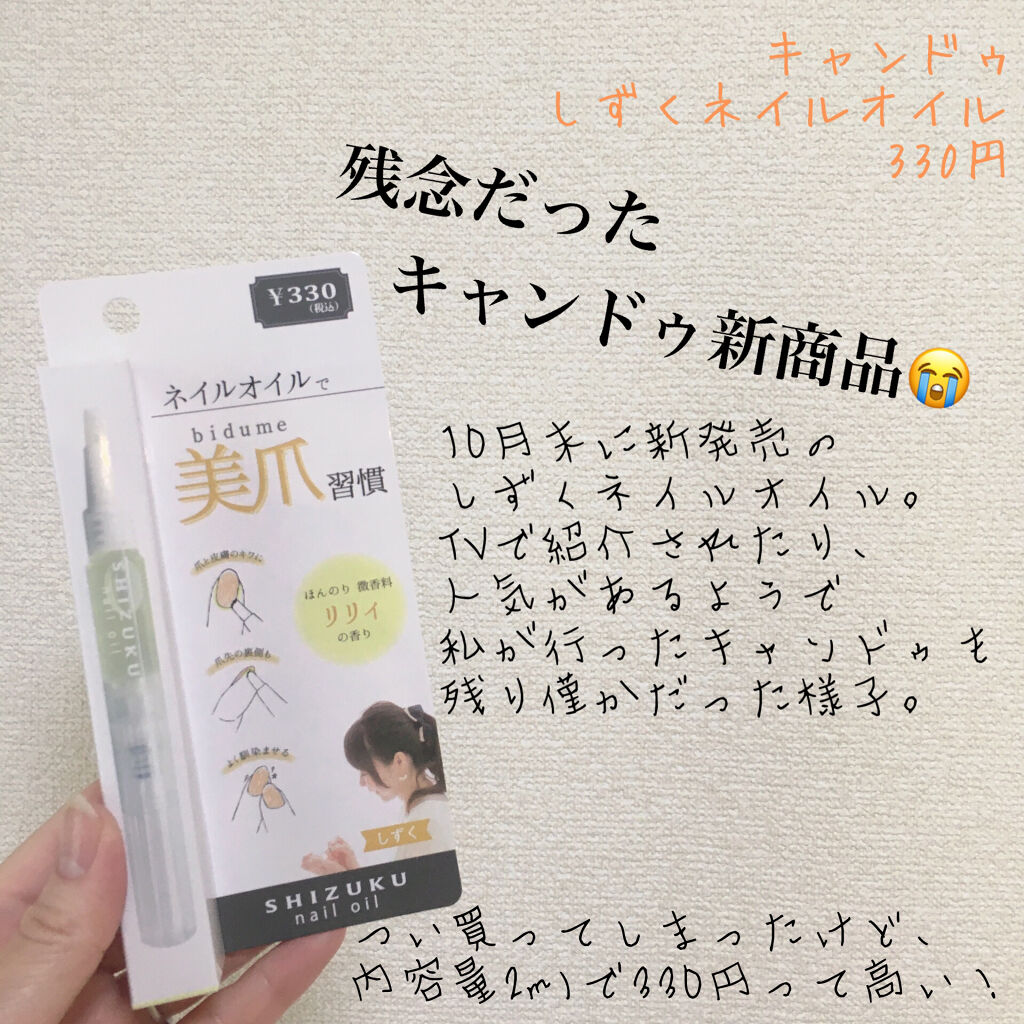 キャンドゥ
しずくネイルオイル
330円
残念だった
キャンドゥ新商品😭
10月末に新発売の
しずくネイルオイル。
TVで紹介されたり、
人気があるようで
私が行ったキャンドゥも
残り僅かだった様子。
¥330
(税込)
ネイルオイルで
bidume
美爪習慣
爪と皮膚のキワに
ほんのり 微香料
リリイ
の香り
爪先の裏側も
よく馴染ませる
しずく
SHIZUKU
nail oil
SHIZUKU
nail oil
つい買ってしまったけど、
内容量2mlで330円って高い!